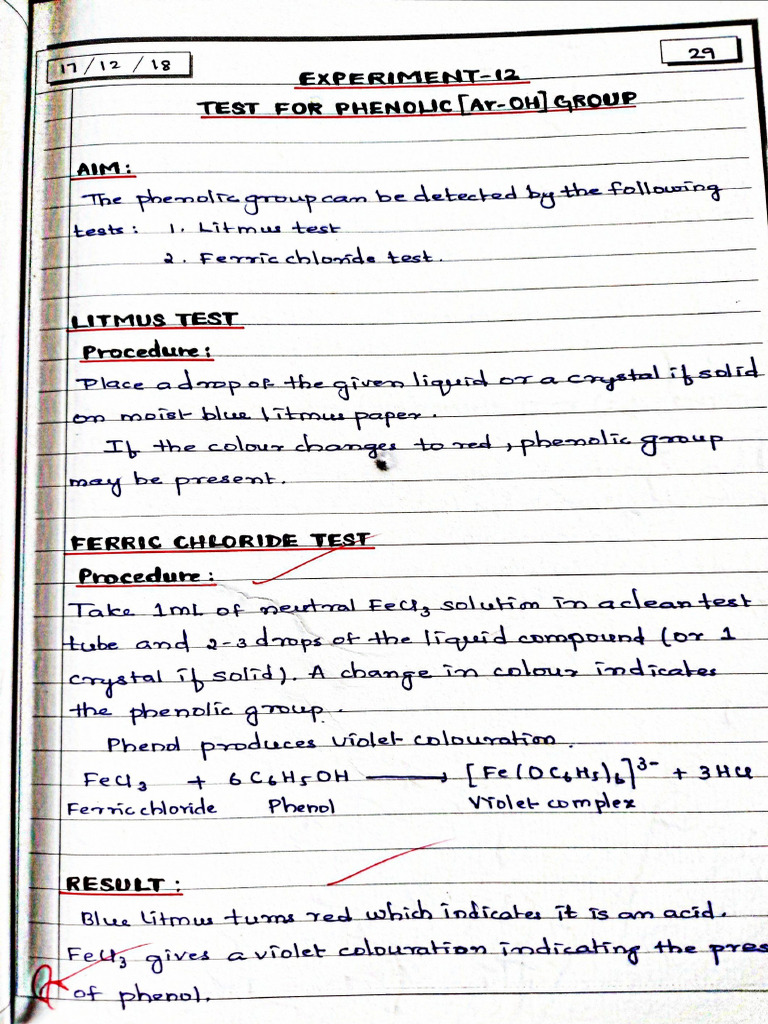 17/12/18
29
EXPERIMENT-12
TEST FOR PHENOLIC [Ar-OH] GROUP
AIM:
The phenolic group can be detected by the following
tests: 1. Litmus test
2. Ferric chloride test.
LITMUS TEST
Procedure:
Place a drop of the given liquid or a crystal if solid
on moist blue litmus paper.
If the colour changes to red, phenolic group
may be present.
FERRIC CHLORIDE TEST
Procedure:
Take 1mL of neutral FeCl₃ solution in a clean test
tube and 2-3 drops of the liquid compound (or 1
crystal if solid). A change in colour indicates
the phenolic group.
Phenol produces violet colouration.
FeCl₃ + 6C₆H₅OH ⟶ [Fe(OC₆H₅)₆]³⁻ + 3HCl
Ferric chloride Phenol Violet complex
RESULT:
Blue litmus turns red which indicates it is an acid.
FeCl₃ gives a violet colouration indicating the pres
of phenol.